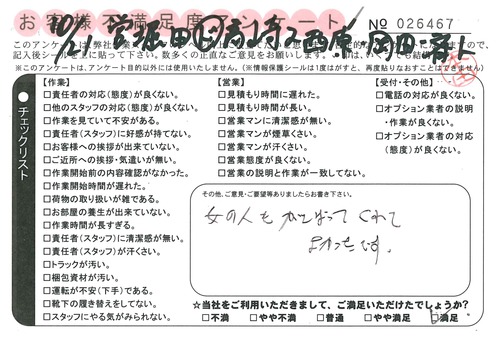 お客様不満足度アンケート
№ 026467
このアンケートは弊社
※このアンケートは、アンケート目的以外には使用しません。(※情報保護シールは1度はがすと、再度貼りなおすことはできません)
チェックリスト
【作業】
□責任者の対応(態度)が良くない。
□他のスタッフの対応(態度)が良くない。
□作業を見ていて不安がある。
□責任者(スタッフ)に好感が持てない。
□お客様への挨拶が出来ていない。
□ご近所への挨拶・気遣いが無い。
□作業開始前の内容確認がなかった。
□作業開始時間が遅れた。
□荷物の取り扱いが雑である。
□お部屋の養生が出来ていない。
□作業時間が長すぎる。
□責任者(スタッフ)に清潔感が無い。
□責任者(スタッフ)が汗くさい。
□トラックが汚い。
□梱包資材が汚い。
□運転が不安(下手)である。
□靴下の履き替えをしてない。
□スタッフにやる気がみられない。
【営業】
□見積もり時間に遅れた。
□見積もり時間が長い。
□営業マンに清潔感が無い。
□営業マンが煙草くさい。
□営業マンが汗くさい。
□営業態度が良くない。
□営業の説明と作業が一致してない。
【受付・その他】
□電話の対応が良くない。
□オプション業者の説明・作業が良くない。
□オプション業者の対応(態度)が良くない。
その他、ご意見・ご要望等ありましたらお書き下さい。
女の人も がんばって くれて
よかったです。
☆当社をご利用いただきまして、ご満足いただけたでしょうか?
□不満 □やや不満 □普通 □やや満足 □満足